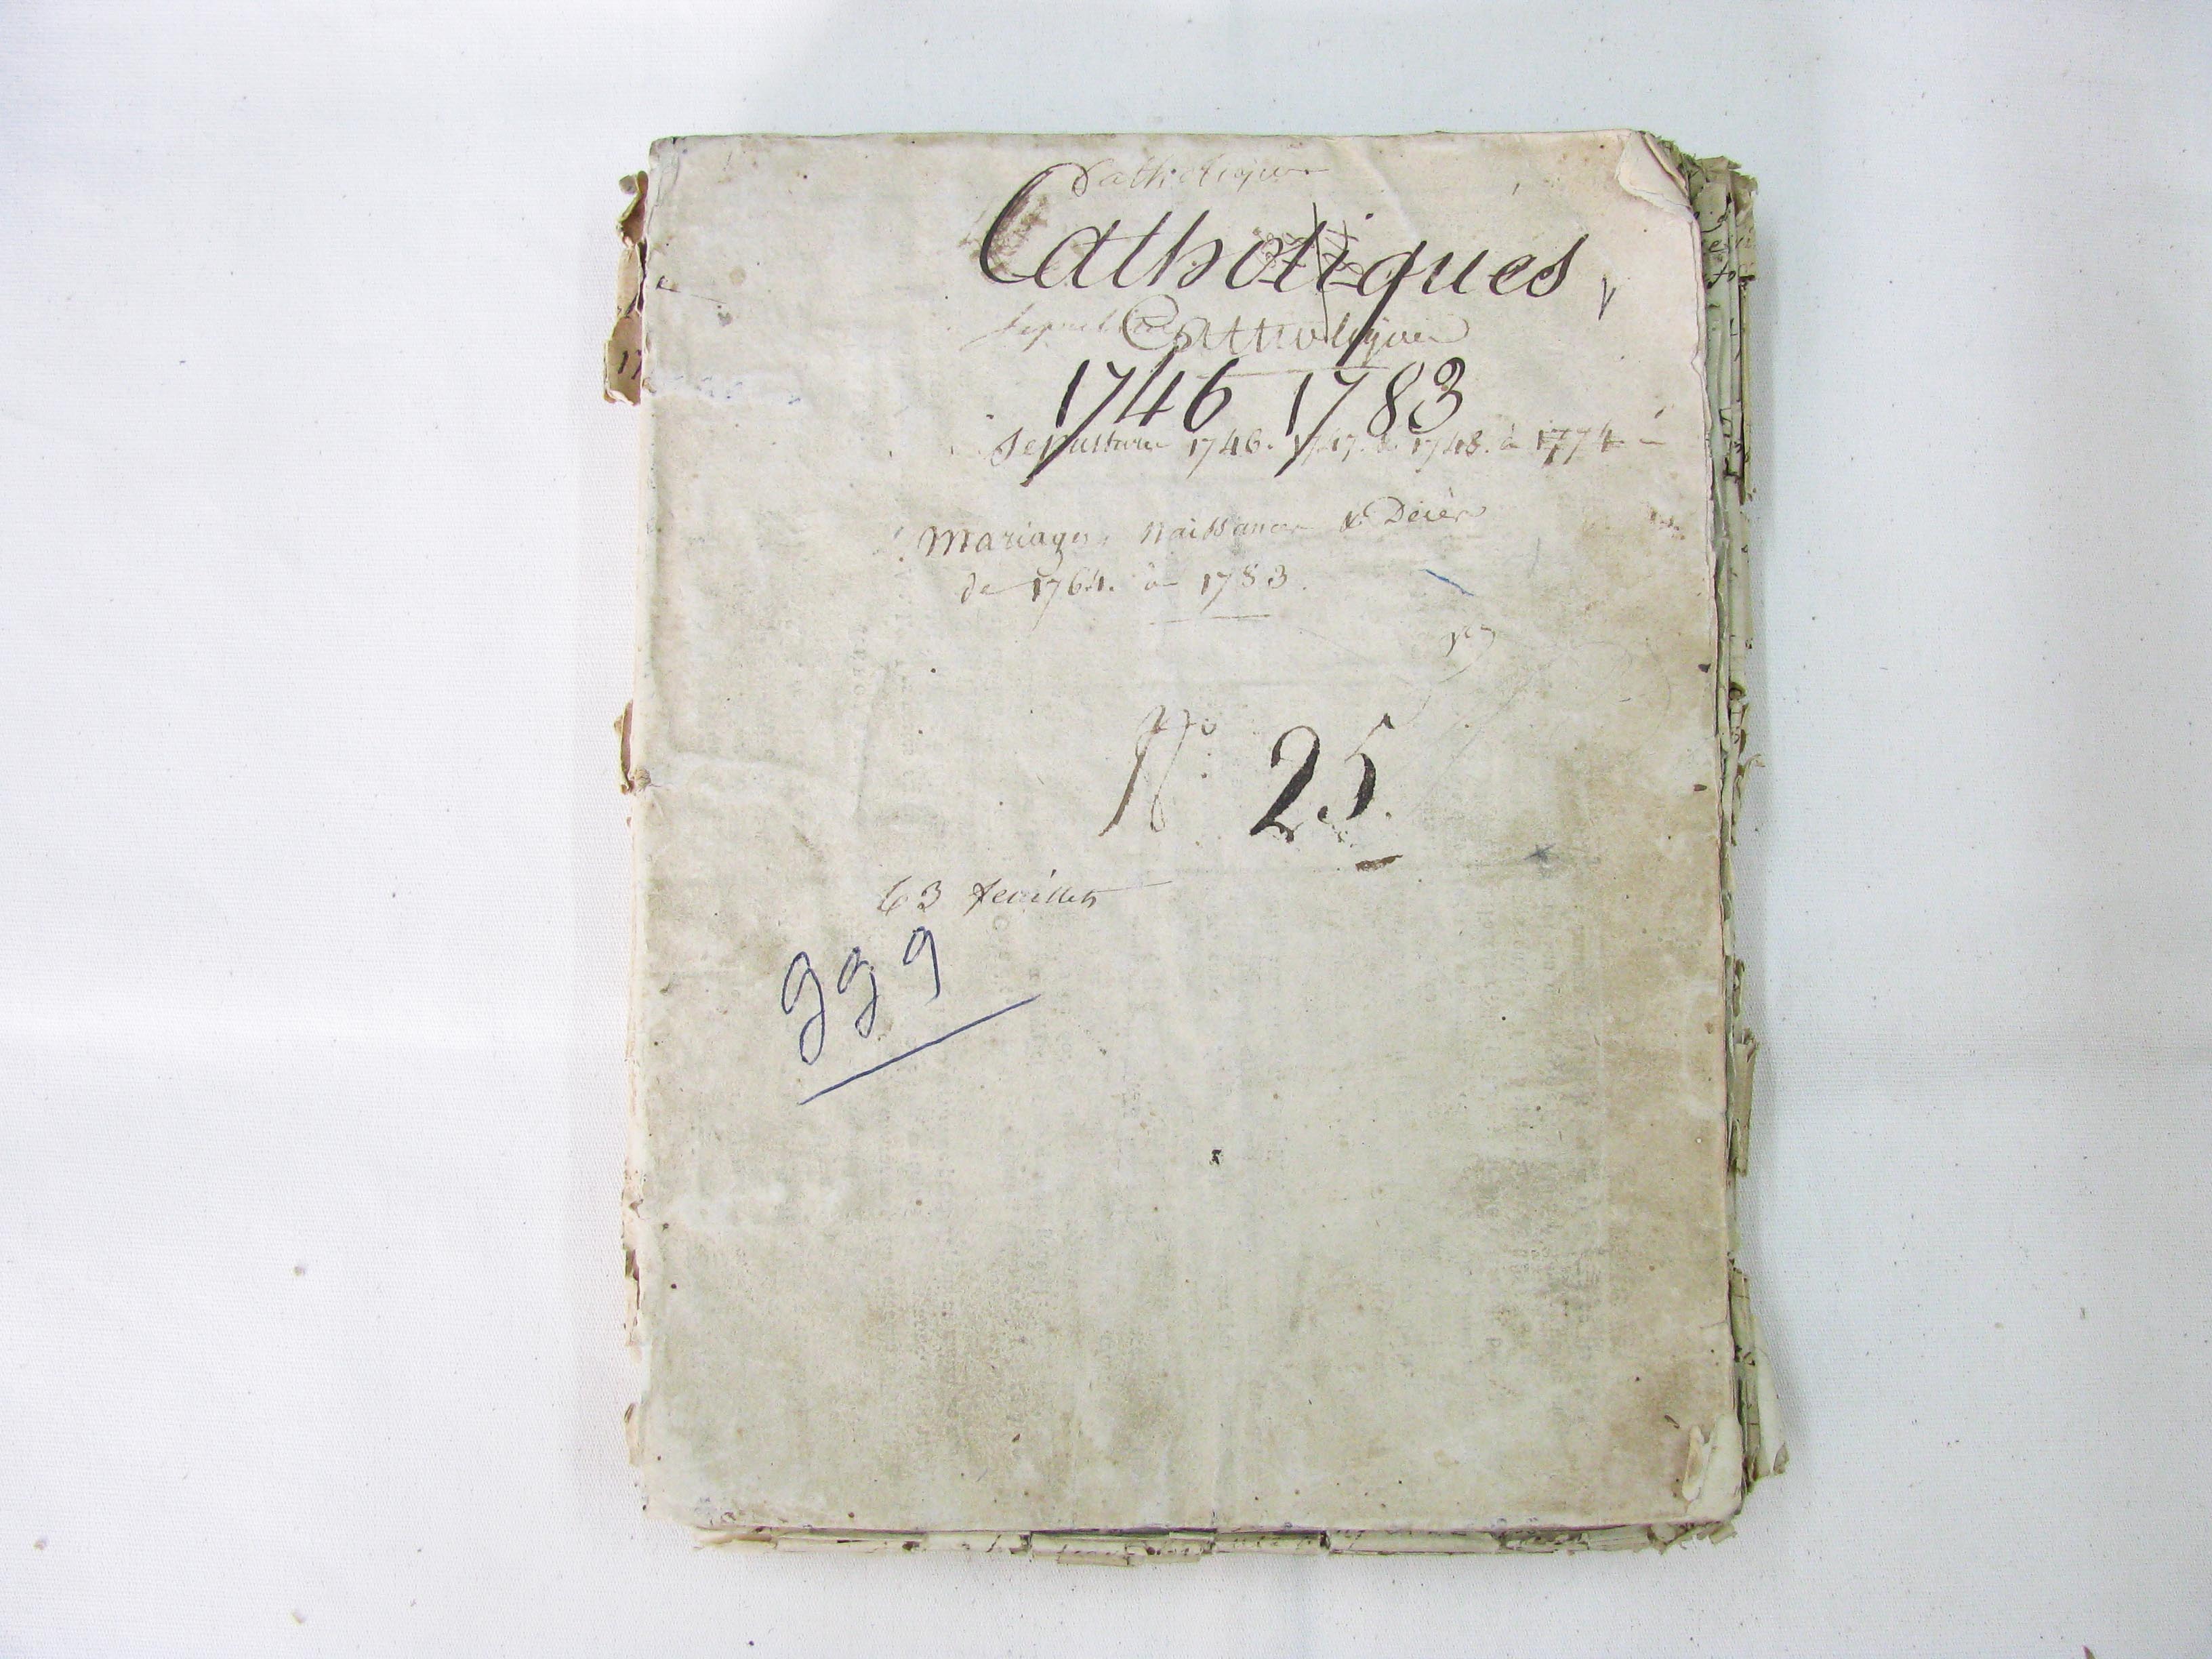 Catholiques
Catholiques
Catholiques
1746 1783
Sepulture 1746. 1747. & 1748. à 1774
Mariages, Naissances & Décès
de 1764. à 1783.
N° 25
63 feuillets
999